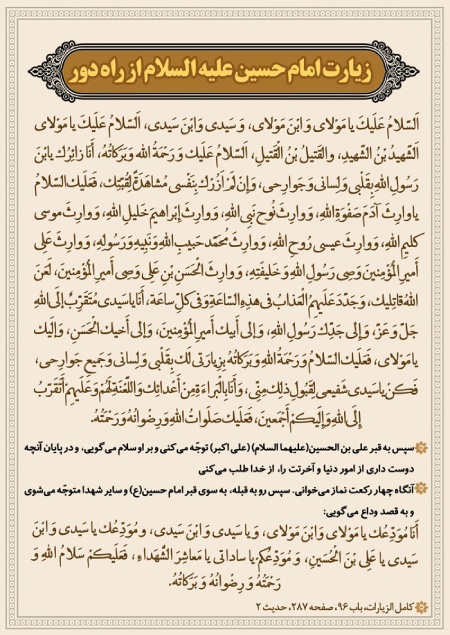 زیارت امام حسین علیه السلام از راه دور
اَلسَّلامُ عَلَیکَ یا مَوْلایَ وَ ابنَ مَوْلایَ، وَ سَیِدی وَ ابْنَ سَیِدی، اَلسَّلامُ عَلَیْکَ یا مَوْلایَ
الشَّهیدُ بْنُ الشَّهیدِ، والقَتیلُ بْنُ الْقَتیلِ، اَلسَّلامُ عَلَیْکَ وَ رَحْمَةُ اللهِ وَ بَرَکاتُهُ، أَنَا زائِرُکَ یابنَ
رَسُولِ اللهِ بِقَلْبی وَ لِسانی وَ جَوارِحی، وَ إِنْ لَمْ أَزُرْکَ بِنَفْسی مُشاهَدَةً لِقُبَّتِکَ، فَعَلَیْکَ السَّلامُ
یا وارِثَ آدَمَ صَفْوَةِ اللهِ، وَ وارِثَ نُوحٍ نَبِیِ اللهِ، وَ وارِثَ إبْراهیمَ خَلیلِ اللهِ، وَ وارِثَ موسی
کلیمِ اللهِ، وَ وارِثَ عیسی رُوحِ اللهِ، وَ وارِثَ مُحَمَّدٍ حَبیبِ اللهِ وَ نَبِیِهِ وَ رَسُولِهِ، وَ وارِثَ عَلِی
أمیرِ الْمُؤْمِنینَ وَصِی رَسُولِ اللهِ وَ خَلیفَتِهِ، وَ وارِثَ الْحَسَنِ بْنِ عَلِی وَصِی أمیرِ الْمُؤْمِنینَ، لَعَنَ
اللهُ قاتِلیکَ، وَ جَدَّدَ عَلَیْهِمُ الْعَذابَ فی هذِهِ السّاعَةِ وَ فی کلِّ ساعَة، أَنَا یا سَیدی مُتَقَرِّبٌ إلَی اللهِ
جَلَّ وَ عَزَّ، وَ إلی جَدِّکَ رَسُولِ اللهِ، وَ إلی أبیکَ أمیرِ الْمُؤْمِنینَ، وَ إلی أخیکَ الْحَسَنِ، وَ إلَیکَ
یا مَوْلایَ، فَعَلَیْکَ السَّلامُ وَ رَحْمَةُ اللهِ وَ بَرَکاتُهُ بِزِیارَتی لَکَ بِقَلْبی وَ لِسانی وَ جَمیعِ جَوارِحی،
فَکنْ یا سَیدی شَفیعی لِقَبُولِ ذلِکَ مِنّی، وَ أَنَا بِالْبَراءَةِ مِنْ أَعْدائِکَ وَ اللَّعْنَةِ لَهُمْ وَ عَلَیْهِمْ أَتَقَرَّبُ
إلَی اللهِ وَ إلَیکُمْ أَجْمَعینَ، فَعَلَیْکَ صَلَواتُ اللهِ وَ رِضْوانُهُ وَ رَحْمَتُهُ.
سپس به قبر علی بن الحسین(علیهما السلام) (علی اکبر) توجّه می‌کنی و بر او سلام می‌گویی، و در پایان آنچه
دوست داری از امور دنیا و آخرتت را، از خدا طلب می‌کنی
آنگاه چهار رکعت نماز می‌خوانی. سپس رو به قبله، به سوی قبر امام حسین(ع) و سایر شهدا متوجّه می‌شوی
و به قصد وداع می‌گویی:
أَنَا مُوَدِّعُکَ یا مَوْلایَ وَ ابْنَ مَوْلایَ، وَ یا سَیدی وَ ابْنَ سَیِدی، وَ مُوَدِّعُکَ یا سَیدی وَ ابْنَ
سَیدی یا عَلِی بْنَ الْحُسَینِ، وَ مُوَدِّعُکم یا ساداتی یا مَعاشِرَ الشُّهَداءِ، فَعَلَیکُمْ سَلامُ اللهِ وَ
رَحْمَتُهُ وَ رِضْوانُهُ وَ بَرَکاتُهُ.
کامل الزیارات، باب ۹۶، صفحه ۲۸۷، حدیث ۲